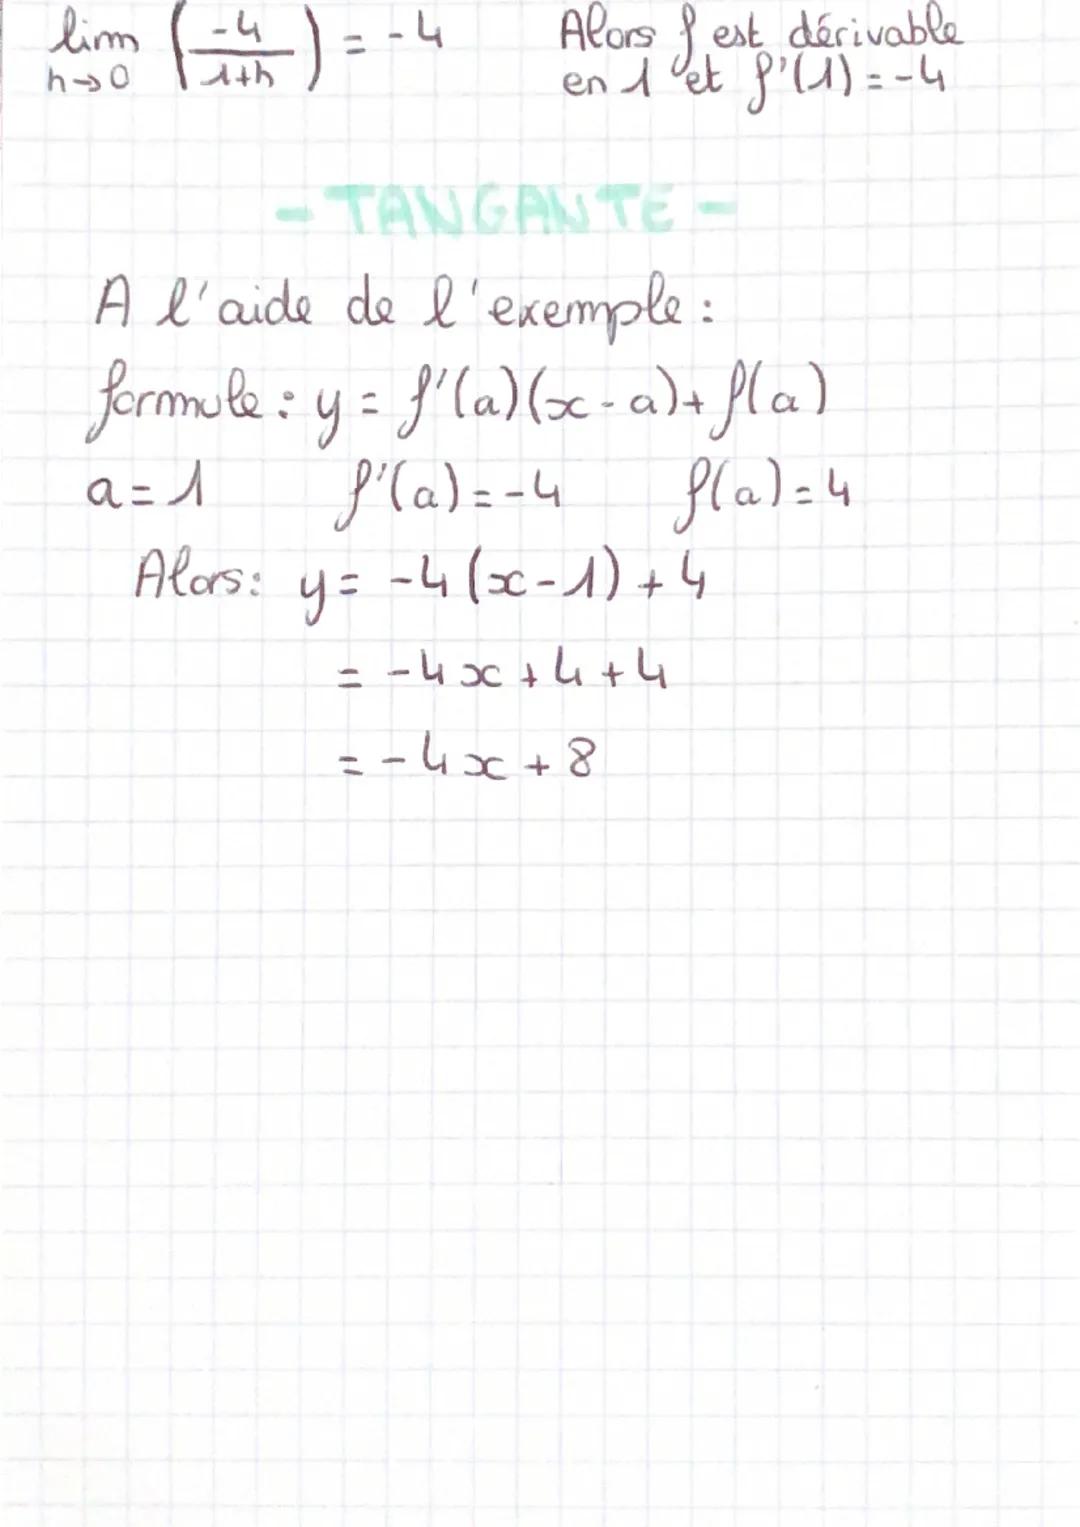 lim (-4/1+h) = -4 Alors f est dérivable
h→0 en 1 et f'(1) = -4
- TANGANTE -
A l'aide de l'exemple :
formule : y = f'(a)(x-a)+f(a)
a=1 f'(a)=-4 f(a)=4
Alors: y= -4(x-1)+4
= -4x+4+4
= -4x+8